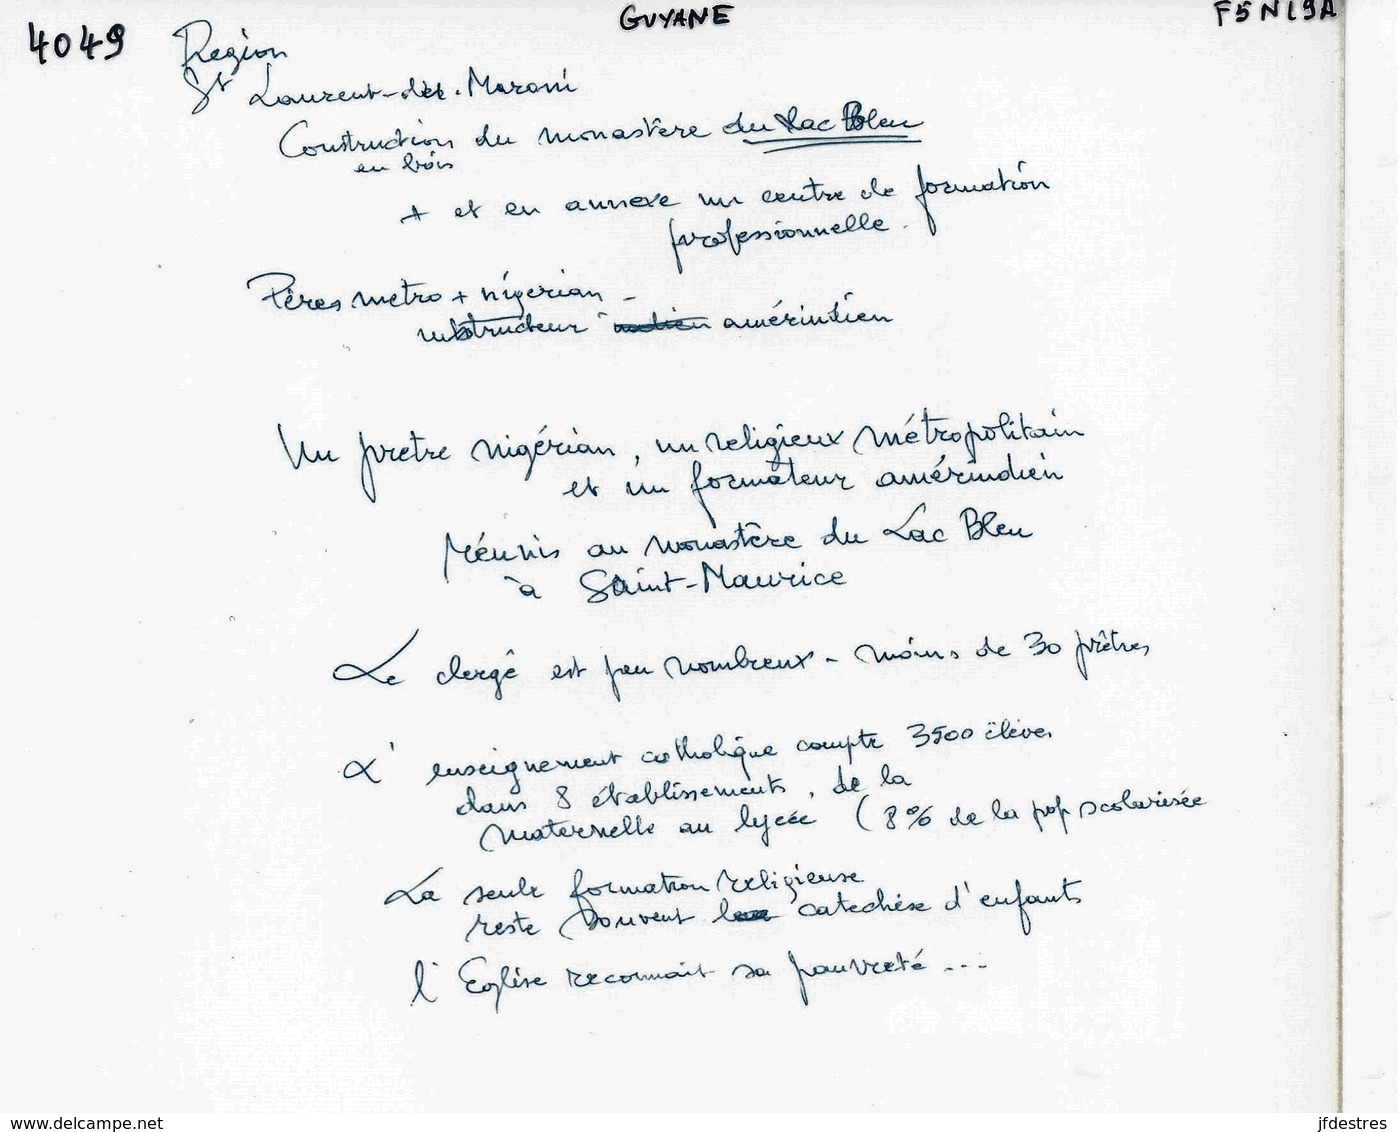 GUYANE
F5NL9A
4049 Region
St Laurent-des-Maroni
Construction du monastère du Lac Bleu
en bois
+ et en annexe un centre de formation
professionnelle.
Pères metro + nigerian -
amérindien
Un pretre nigérian, un religieux métropolitain
et un formateur amérindien
réunis au monastère du Lac Bleu
à Saint-Maurice
Le clergé est peu nombreux - moins de 30 prêtres
L' enseignement catholique compte 3500 élèves
dans 8 établissements, de la
maternelle au lycée (8% de la pop scolarisée
La seule formation religieuse
reste souvent la catechèse d'enfants
l'Eglise reconnait sa pauvreté ...
www.delcampe.net
jfdestres